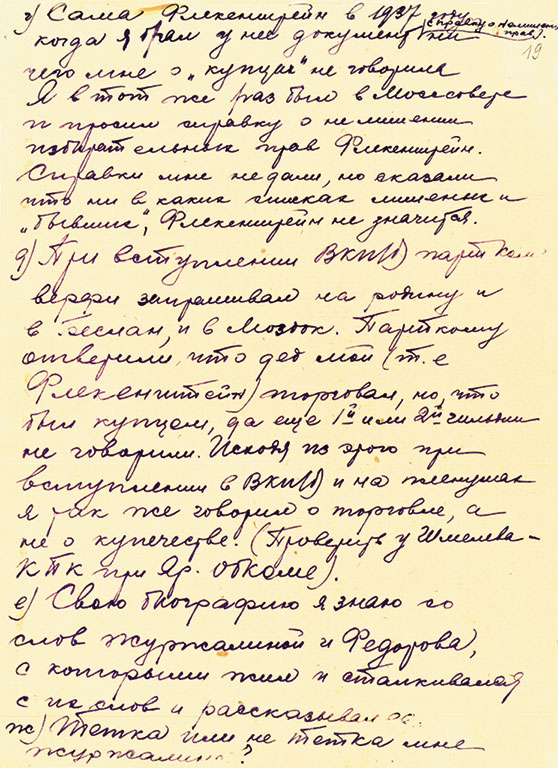 г) Сама Флекенштейн в 1937 году
(справку о лишении прав).
19
когда я брал у нее документ ни
чего мне о „купцах" не говорила
Я в тот же раз был в Моссовете
и просил справку о не лишении
избирательных прав Флекенштейн.
Справки мне не дали, но сказали
что ни в каких списках лишенных и
„бывших", Флекенштейн не значится.
д) При вступлении ВКП(б) партком
верфи запрашивал на родину и
в Беслан, и в Моздок. Парткому
ответили, что дед мой (т.е
Флекенштейн) торговал, но, что
был купцем, да еще 1й или 2й гильдии
не говорили. Исходя из этого при
вступлении в ВКП(б) и на пленумах
я так же говорил о торговле, а
не о купечестве. (Проверить у Шмелева –
КПК при Яр. Обкоме).
е) Свою биографию я знаю со
слов Журжалиной и Федорова,
с которыми жил и сталкивался
с их слов и рассказывал
ж) Тетка или не тетка мне
Журжалина?